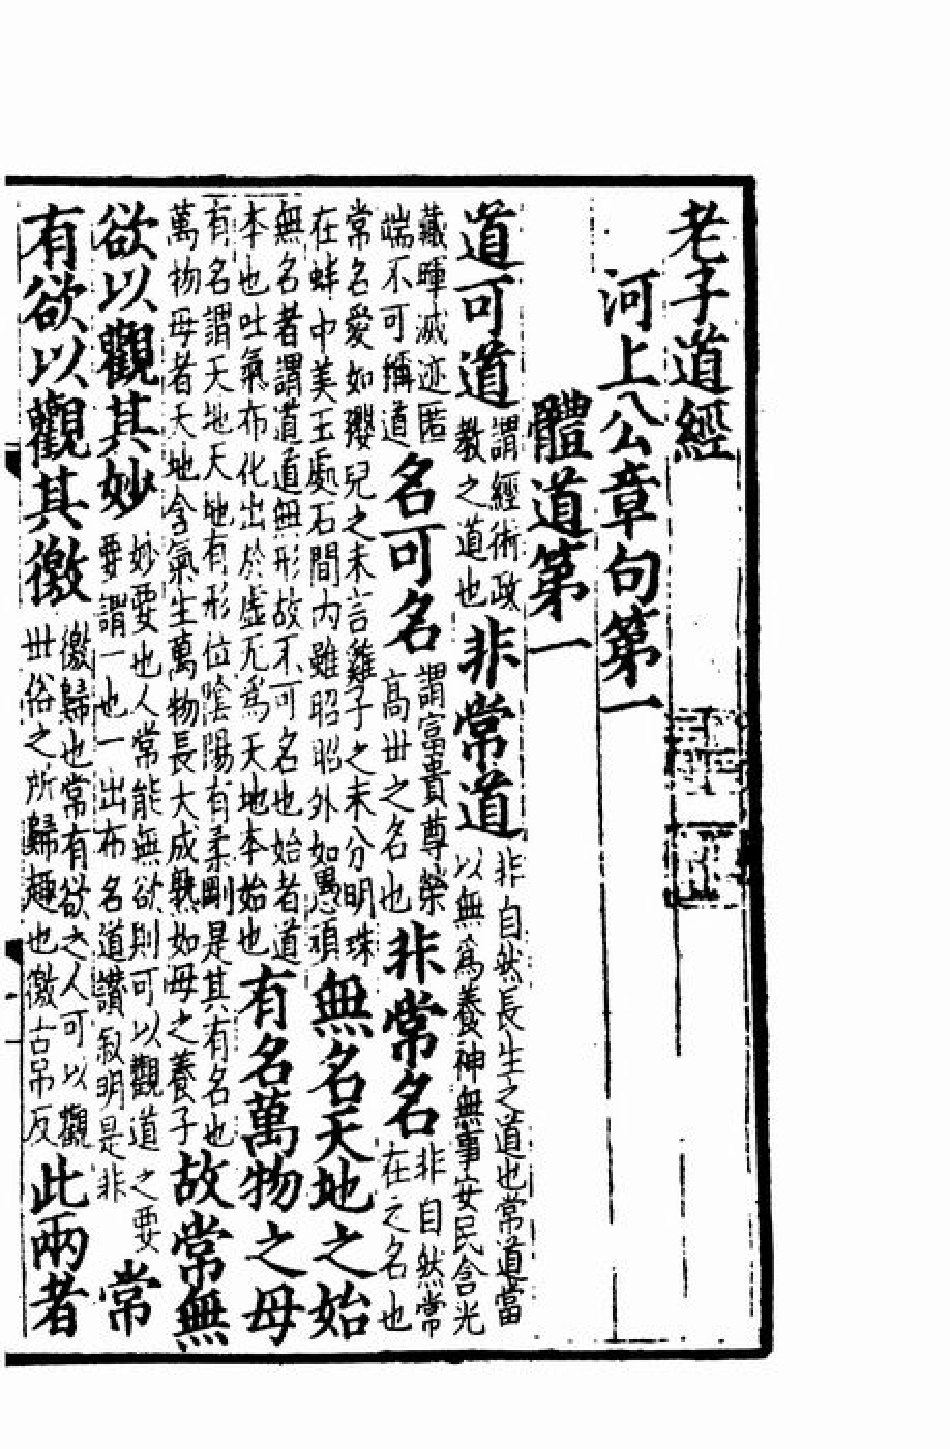 老子道經
河上公章句第一
體道第一
道可道謂經術政教之道也非常道非自然長生之道也常道當以無爲養神無事安民含光
藏暉滅迹匿端不可稱道名可名謂富貴尊榮高丗之名也非常名非自然常在之名也
常名愛如嬰兒之未言雞子之未分明珠在蚌中美玉處石間内雖昭昭外如愚頑無名天地之始
無名者謂道道無形故不可名也始者道本也吐氣布化出於虛无爲天地本始也有名萬物之母
有名謂天地天地有形位陰陽有柔剛是其有名也萬物母者天地含氣生萬物長大成熟如母之養子故常無
欲以觀其妙妙要也人常能無欲則可以觀道之要要謂一也一出布名道讃叙明是非常
有欲以觀其徼徼歸也常有欲之人可以觀丗俗之所歸趣也徼古吊反此兩者